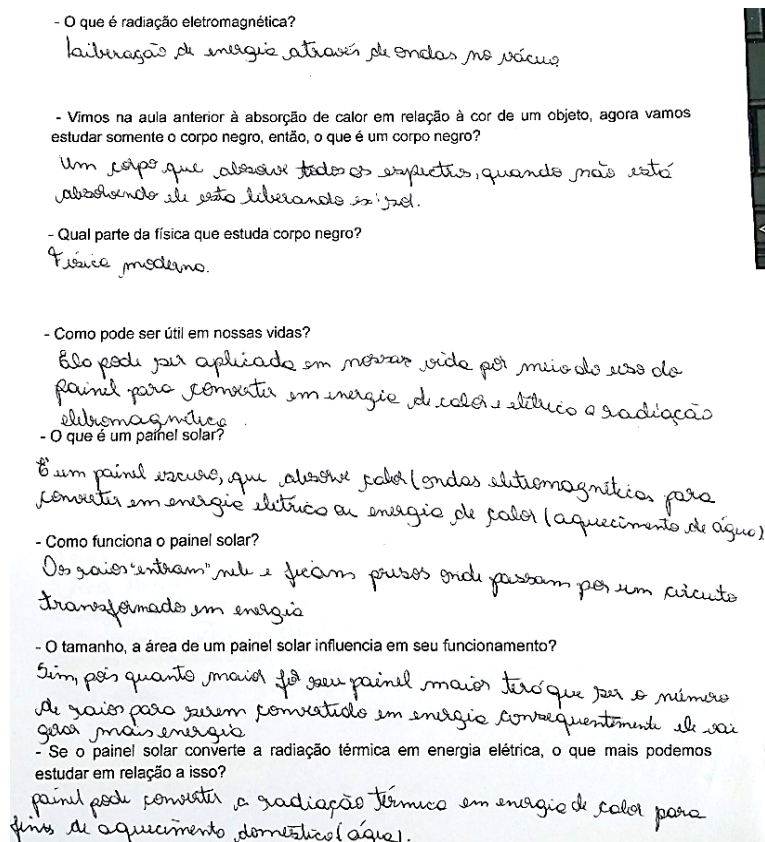 - O que é radiação eletromagnética?
Laiberação de energia através de ondas no vácuo
- Vimos na aula anterior à absorção de calor em relação à cor de um objeto, agora vamos
estudar somente o corpo negro, então, o que é um corpo negro?
Um corpo que absorve todos os espectros, quando não está
absolvendo ele esta liberando ex: sol.
- Qual parte da física que estuda corpo negro?
Fisica moderna.
- Como pode ser útil em nossas vidas?
Ela pode ser aplicada em nossas vida por meio do uso do
painel para converter em energia de calor e elétrica a radiação
eletromagnética.
- O que é um painel solar?
É um painel escuro, que absorve calor (ondas eletromagnéticas para
converter em energia elétrica ou energia de calor (aquecimento de água)
- Como funciona o painel solar?
Os raios "entram" nele e ficam presos onde passam por um circuito
transformado em energia
- O tamanho, a área de um painel solar influencia em seu funcionamento?
Sim, pois quanto maior for seu painel maior terá que ser o número
de raios para serem convertido em energia consequentemente ele vai
gerar mais energia
- Se o painel solar converte a radiação térmica em energia elétrica, o que mais podemos
estudar em relação a isso?
painel pode converter a radiação térmica em energia de calor para
fins de aquecimento doméstico (água).